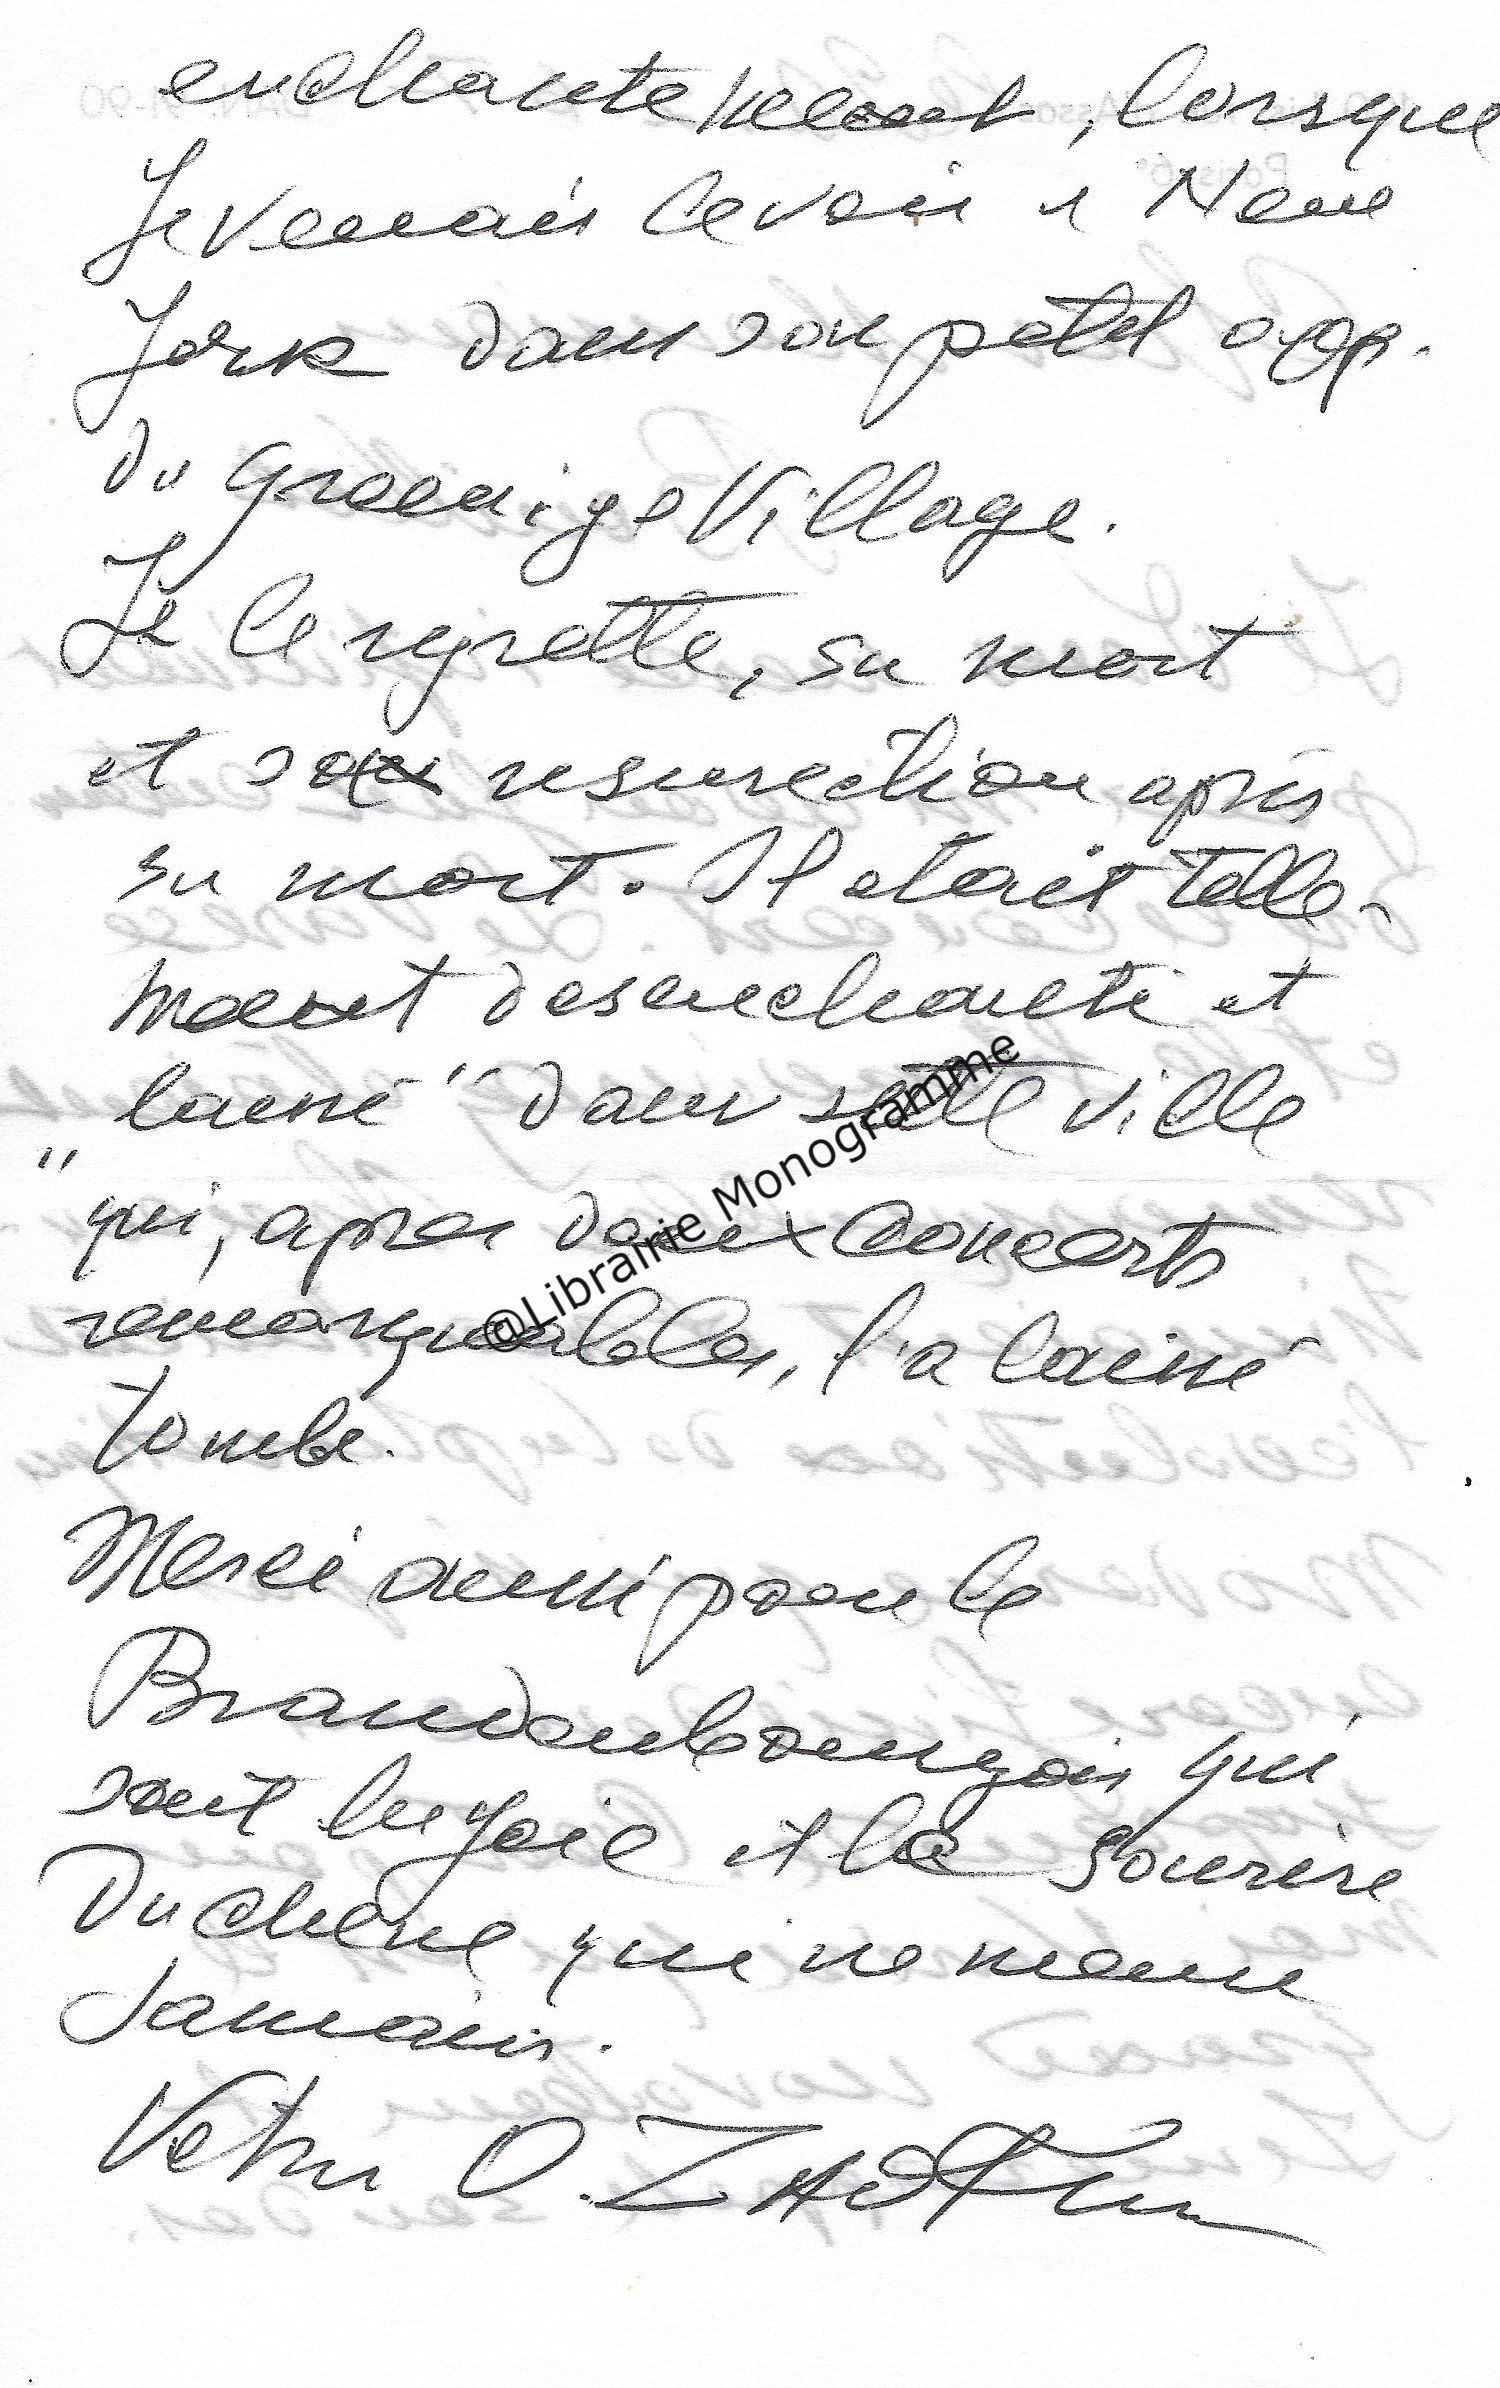 enchantement, lorsque
Je venais le voir a New
York dans son petit app.
du Greenige Village.
Je le regrette, sa mort
et son resurection après
sa mort. Il etait telle-
ment desenchanté et
"laissé" dans sette ville
qui, apres deux concerts
remarquables, l'a laissé
tombe.
Merci aussi pour le
Brandenbourgois qui
sont la joie et le sourire
Du chêne qui ne meure
Jamais.
Votre O. Zadkine
@Librairie Monogramme